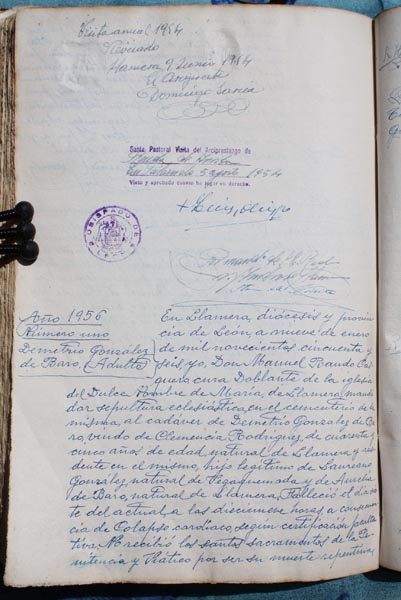 Visita anual 1954
Visitado
Llamera 9 Junio 1954
El Arcipreste
Domingo García
Santa Pastoral Visita del Arciprestazgo de
5 agosto 1954
Visto y aprobado cuanto ha lugar en derecho.
+ Luis, obispo
OBISPADO DE LEON
Año 1956
Número uno
Demetrio González
de Baro, (Adulto)
En Llamera, diócesis y provin
cia de León, a nueve de enero
de mil novecientos cincuenta y
seis, yo, Don Manuel
cura de la iglesia
del Dulce Nombre de María, de Llamera, mandé
dar sepultura eclesiástica, en el cementerio de la
misma, al cadáver de Demetrio González de Ba
ro, viudo de Clemencia Rodríguez, de cuarenta y
cinco años de edad natural de Llamera y resi
dente en el mismo, hijo legítimo de Laureano
González, natural de Vegaquemada, y de Aurelia
de Baro, natural de Llamera, Falleció el día sie
te del actual a las diecinueve horas a consecuen
cia de Colapso cardiaco, según certificación facul
tiva. No recibió los santos sacramentos de la Pe
nitencia y Viático por ser su muerte repentina,